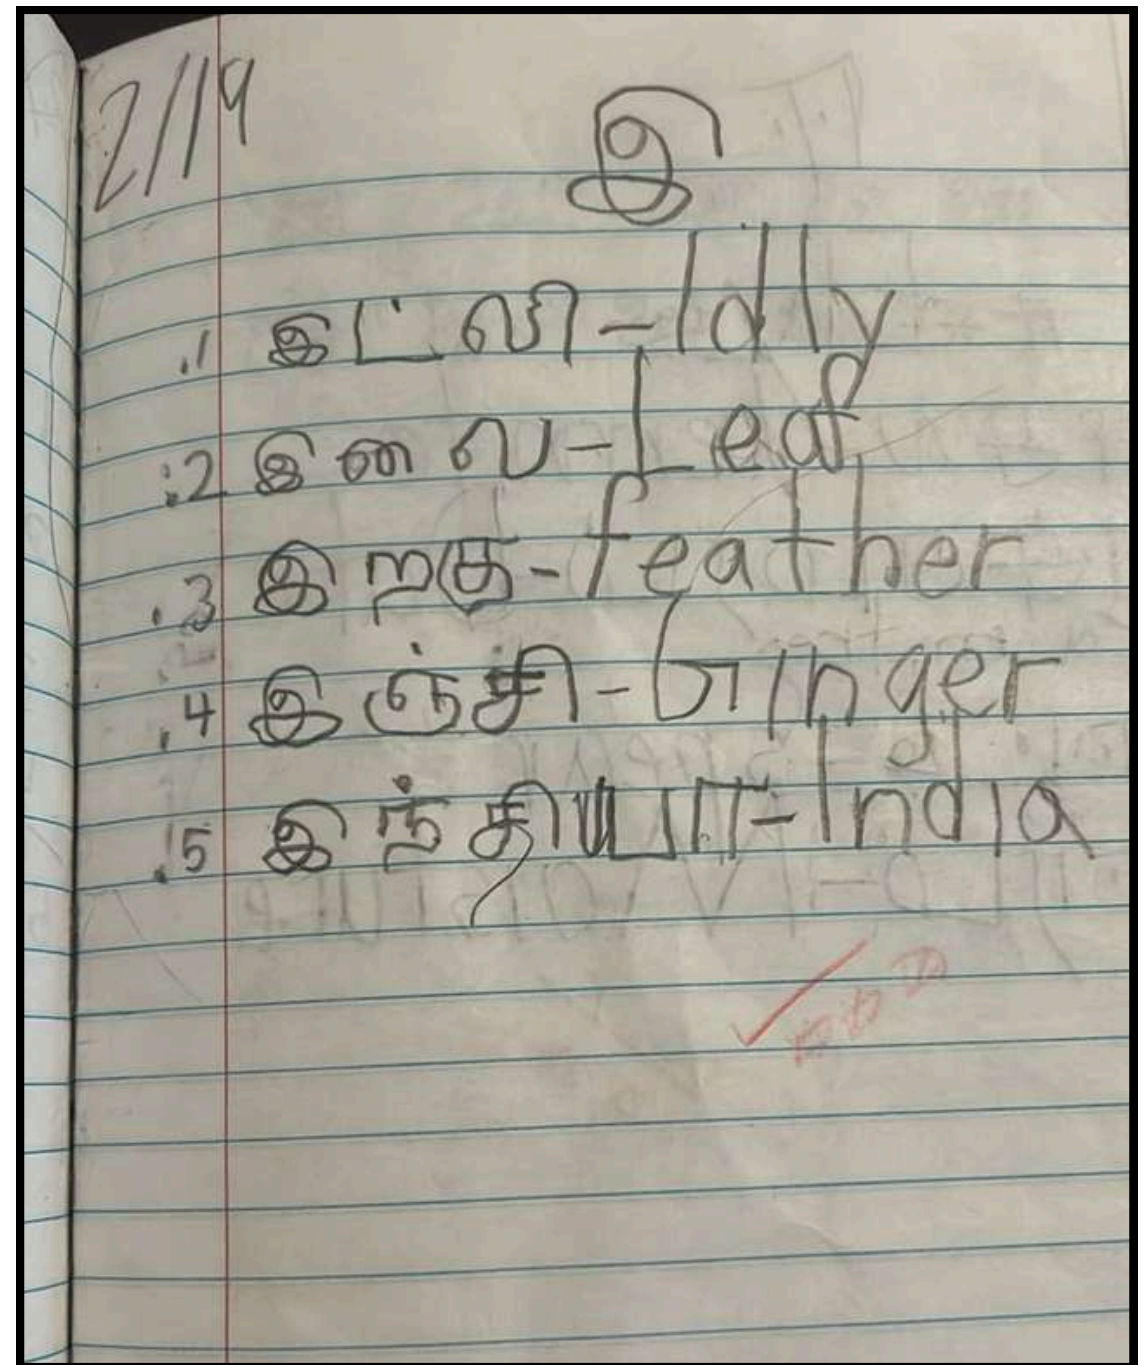 2/19
இ
.1 இட்லி - Idly
.2 இலை - Leaf
.3 இறகு - feather
.4 இஞ்சி - Ginger
.5 இந்தியா - India